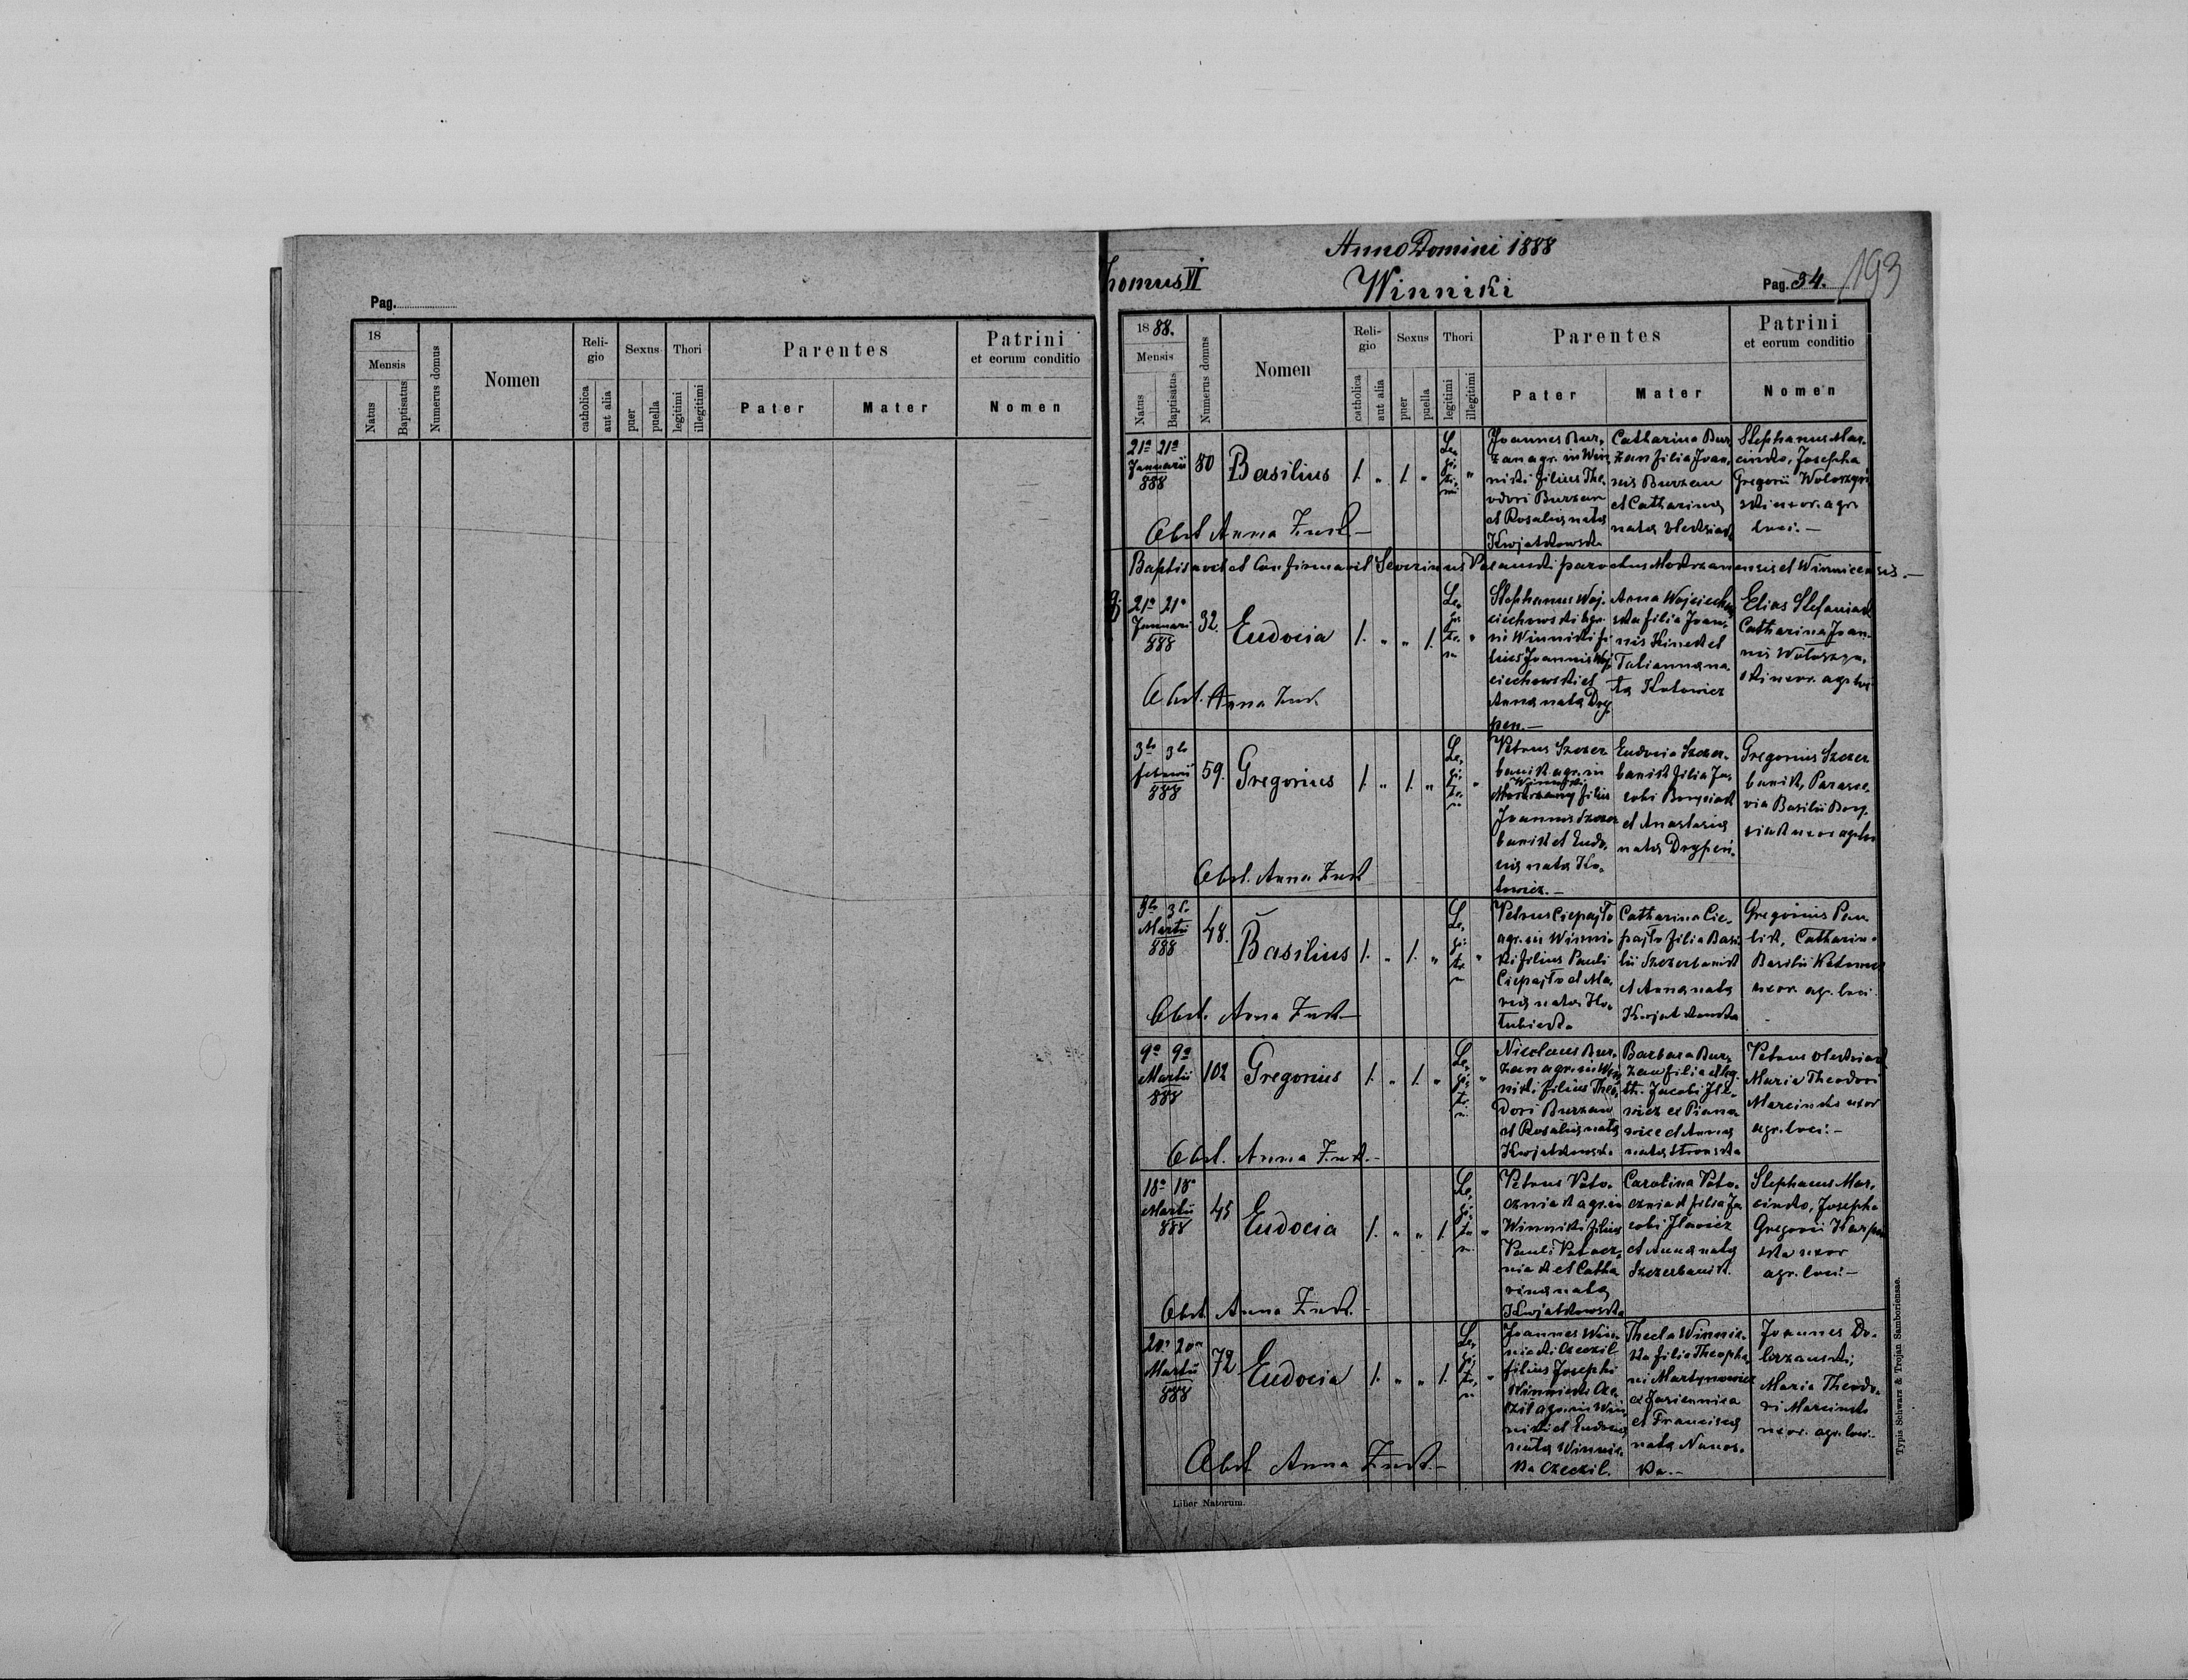 Pag.
18
Mensis
Natus
Baptisatus
Numerus domus
Nomen
Religio
catholica
aut alia
Sexus
puer
puella
Thori
legitimi
illegitimi
Parentes
Pater
Mater
Patrini
et eorum conditio
Nomen
Anno Domini 1888
Thomus VI
Winniki
Pag. 34.
193
1888.
Mensis
Natus
Baptisatus
Numerus domus
Nomen
Reli-
gio
catholica
aut alia
Sexus
puer
puella
Thori
legitimi
illegitimi
Parentes
Pater
Mater
Patrini
et eorum conditio
Nomen
21a 21a
Januarii
888
80
Basilius
1. „ 1. „
Le,
gi,
ti,
mi
Joannes Bur,
zan agr. in Win,
niki filius The,
odori Burzan
et Rosaliæ natæ
Kwjatkowska
Catharina Bur
zan filia Joan,
nis Burzan
et Catharinæ
natæ Oleksiak
Stephanus Mar,
cinko, Josepha
Gregorii
uxor. agr.
loci. –
Obst. Anna Zust –
Baptisavit et Confirmavit Severinus parochus Mokrzanensis et Winnicensis. –
21a 21a
Januari
888
32.
Eudocia
1. „ „ 1.
Stephanus Woj,
ciechowski agr.
in Winniki fi
lius Joannis Woj
ciechowski et
Anna nata Dry
pen. –
Anna Wojciechow
ska filia Joan,
nis Kinek et
Tatianna na,
ta Kotowicz
Elias Stefaniak
Catharina Joan,
nis
uxor. agr. loci
Obst. Anna Zust.
3tia 3tia
Februarii
888
59.
Gregorius
1. „ 1. „
Petrus Szczer
banik agr. in
Winniki
Mokrzany filius
Joannis Szczer
banik et Eudo,
ciæ natæ Ko,
towicz. –
Eudocia Szczer,
banik filia Ja,
cobi Borysiak
et Anastasiæ
natæ Drypen.
Gregorius Szczer
banik, Parasce,
via Basilii Bory,
siak uxor agr. loci
Obst. Anna Zust
3tia 3tia
Martii
888
48.
Basilius
1. „ 1. „
Petrus Ciepajło
agr. in Winni,
ki filius Pauli
Ciepajło et Ma,
riæ natæ Ho,
łubiecka
Catharina Cie,
pajło filia Basi
lii Szczerbanik
et Anna nata
Kwjatkowska
Gregorius Paw
lik, Catharina
Basilii Kotowicz
uxor. agr. loci.
Obst. Anna Zust –
9a 9a
Martii
888
102
Gregorius
1. „ 1. „
Nicolaus Bur,
zan agr. in Win
niki filius Theo,
dori Burzan
et Rosaliæ natæ
Kwjatkowska
Barbara Bur,
zan filia
Jacobi
et Anna
nata
Petrus Oleksiak
Maria Theodori
Marcinko uxor
agr. loci. –
Obst. Anna Zust. –
18a 18a
Martii
888
45
Eudocia
1. „ „ 1.
Petrus Poto,
czniak agr. in
Winniki filius
Pauli Potocz,
niak et Catha
rina nata
Kwjatkowska
Carolina Poto,
czniak filia Ja
cobi
et Anna nata
Szczerbanik.
Stephanus Mar,
cinko, Josepha
Gregorii
uxor
agr. loci. –
Obst. Anna Zust. –
20a 20a
Martii
888
72
Eudocia
1. „ „ 1.
Joannes Win,
nicki Czeczil
filius Josephi
Winnicki Cze,
czil agr. in Win
niki et Eudocia
nata Winnic,
ka Czeczil.
Thecla Winnic,
ka filia Theopha
ni Martynowicz
ex Jasiennica
et Francisca
nata Nanos,
ka. –
Joannes Do,
brzanski,
Maria Theodo,
ri Marcinko
uxor. agr. loci. –
Obst. Anna Zust. –
Liber Natorum.
Typis Schwarz & Trojan Samboriensae.